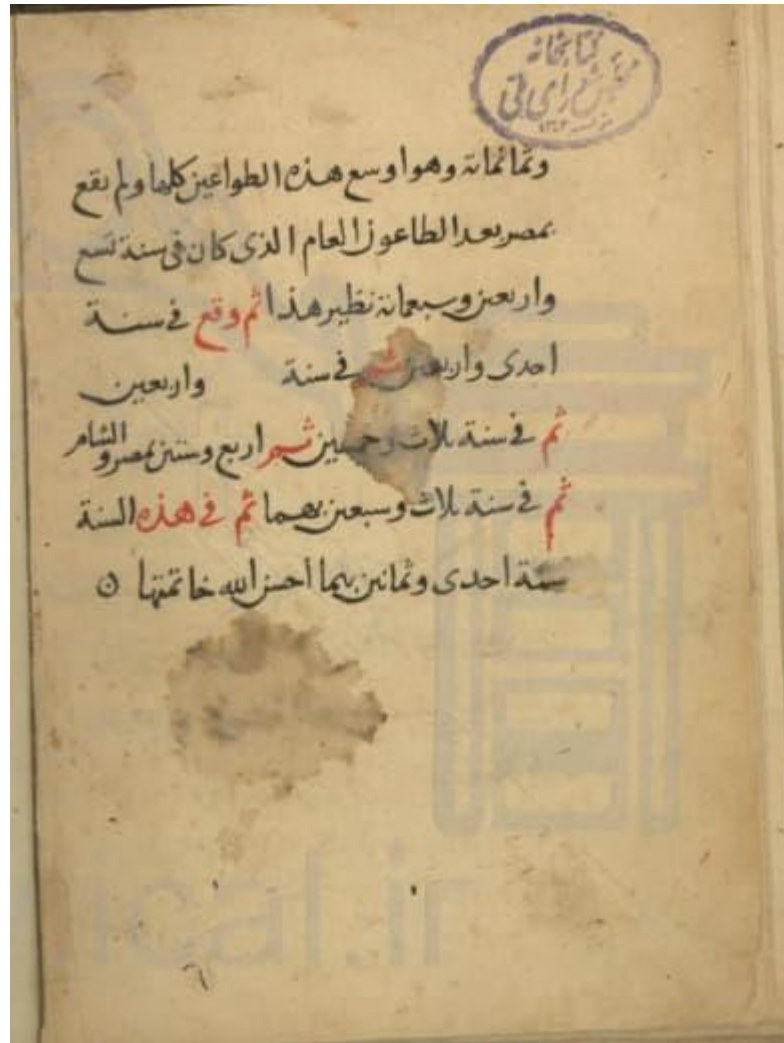 كتابخانه
مجلس شورای ملی
وثمانمائة وهو اوسع هذه الطواعين كلها ولم يقع
بمصر بعد الطاعون العام الذى كان فى سنة تسع
واربعين وسبعمائة نظير هذا ثم وقع فى سنة
احدى واربعين ثم فى سنة واربعين
ثم فى سنة ثلاث وخمسين ثم اربع وستين بمصر والشام
ثم فى سنة ثلاث وسبعين بهما ثم فى هذه السنة
سنة احدى وثمانين بهما احسن الله خاتمتها
ical.ir